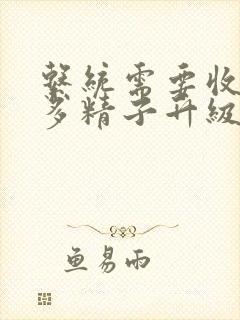 繫統需要收
多精子升級
鱼易雨